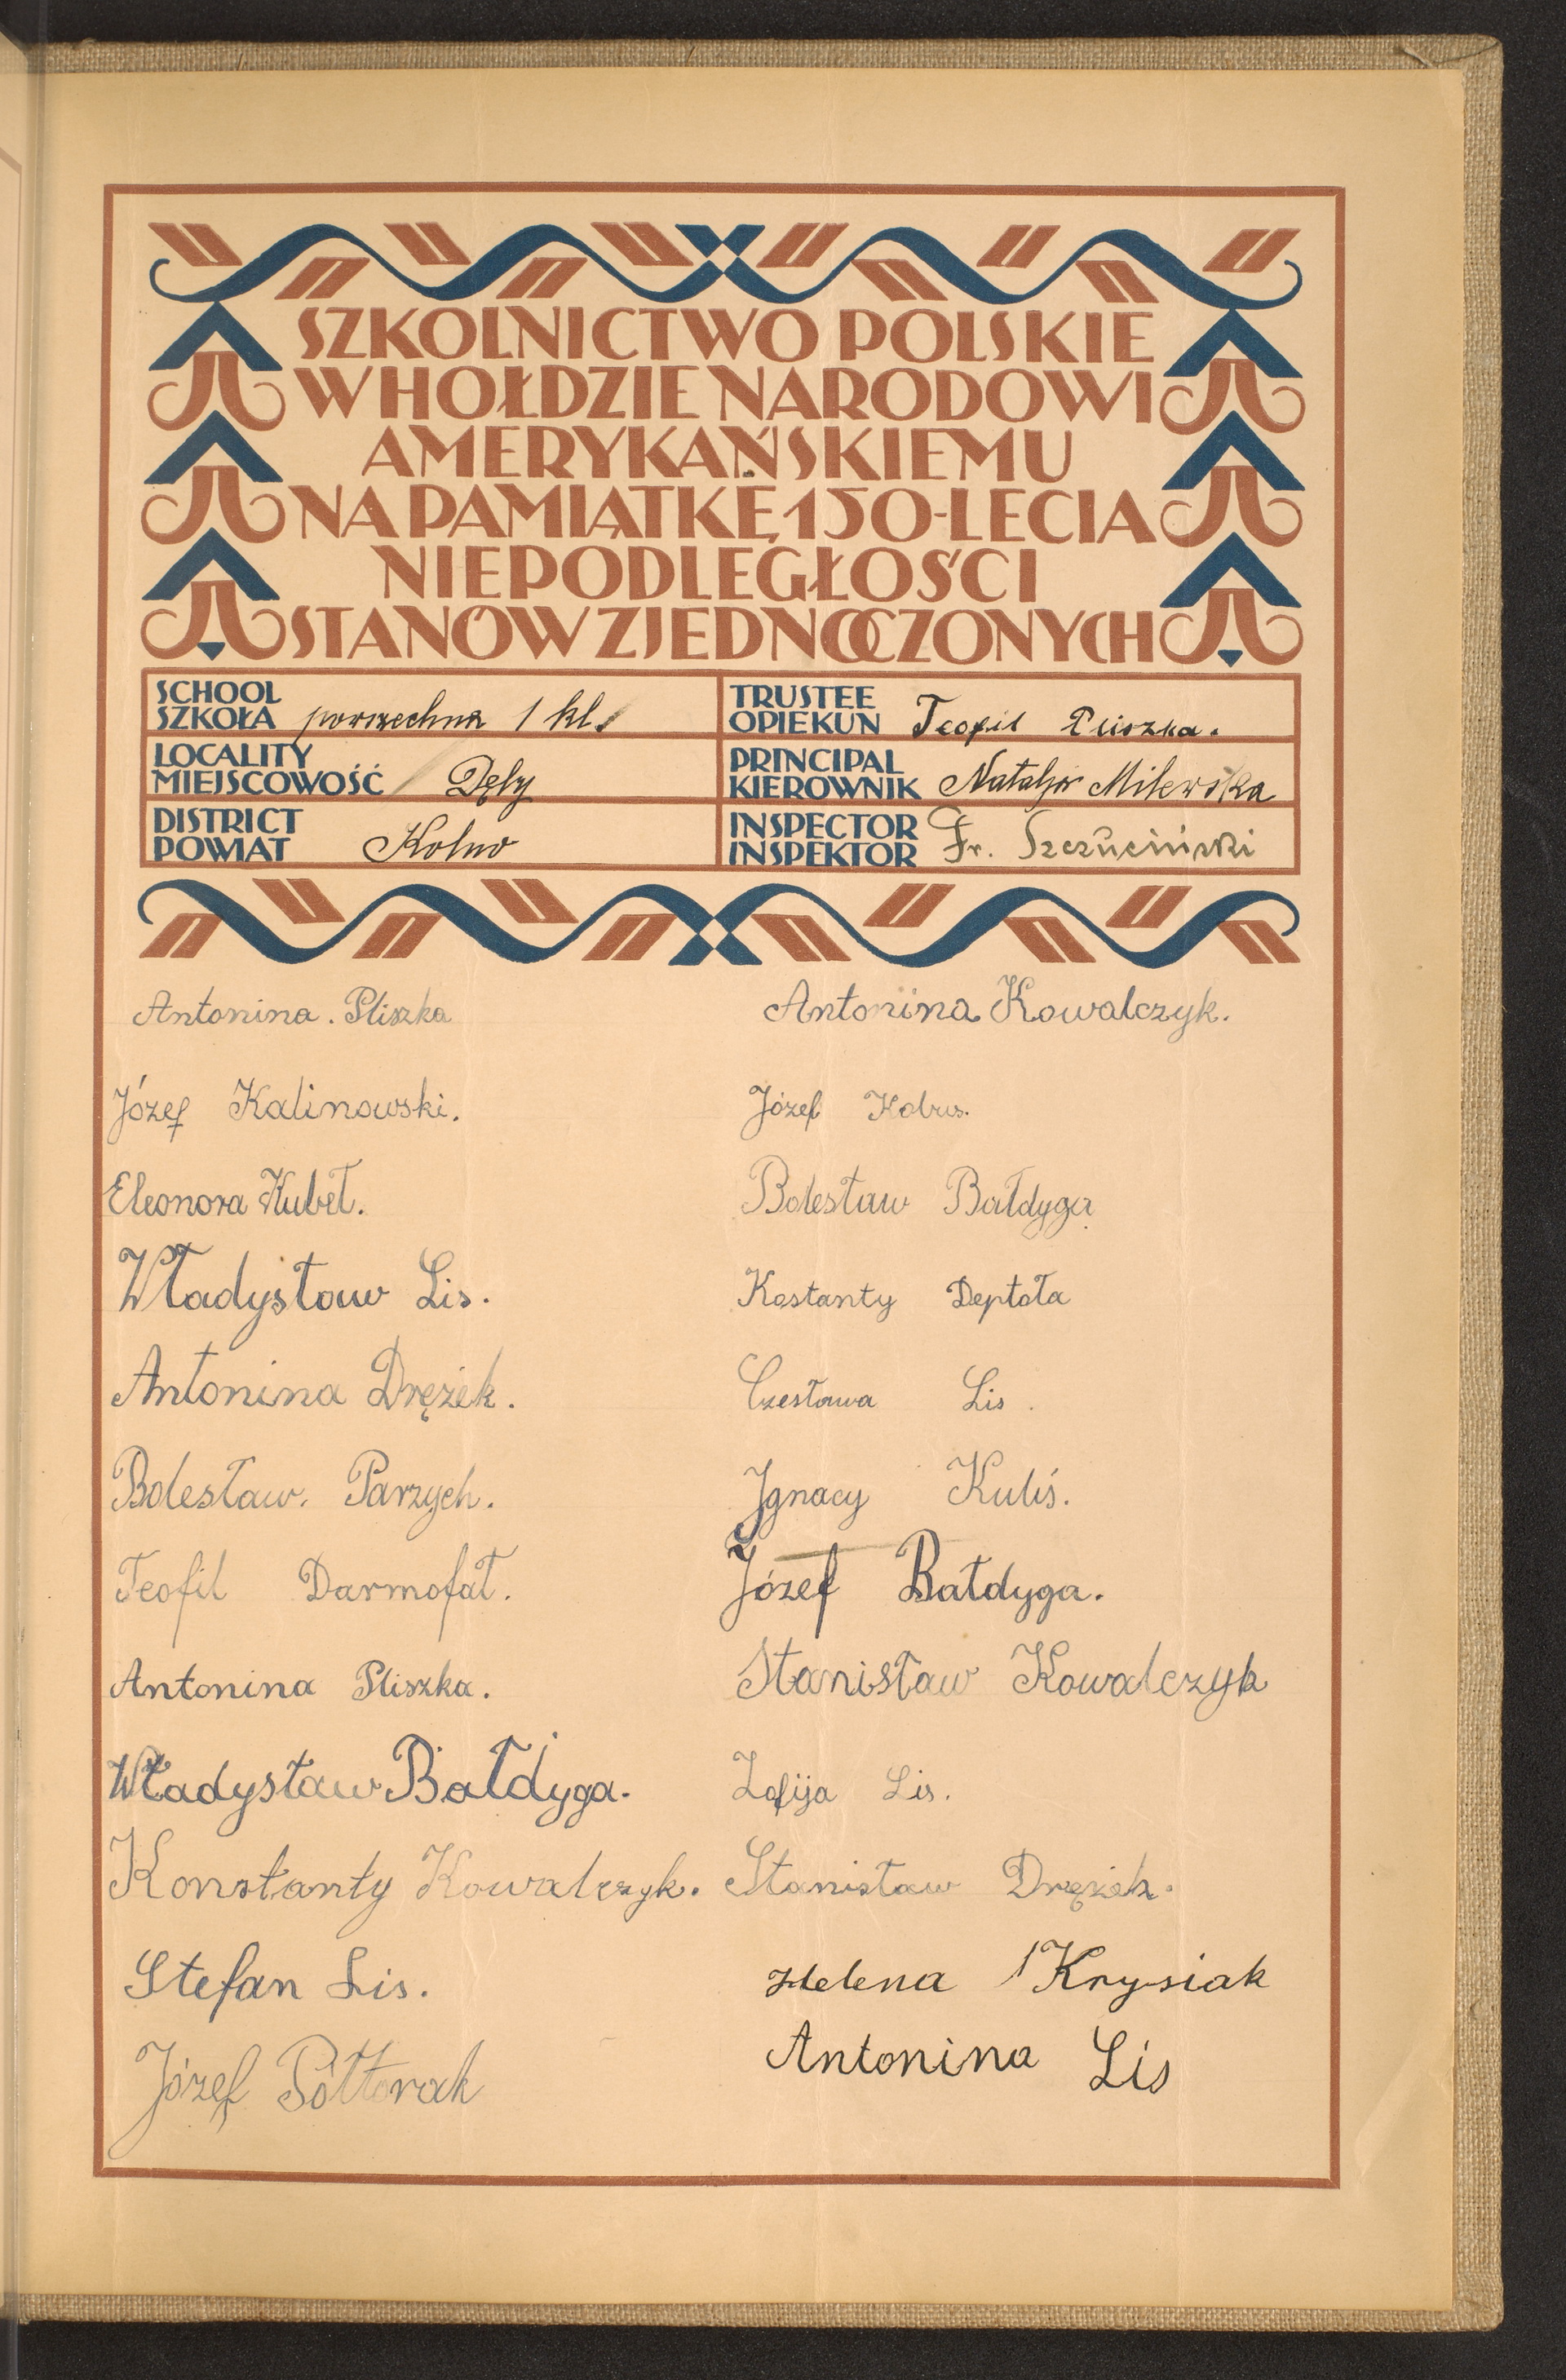 SZKOLNICTWO POLSKIE
W HOŁDZIE NARODOWI
AMERYKAŃSKIEMU
NA PAMIĄTKĘ 150-LECIA
NIEPODLEGŁOŚCI
STANÓW ZJEDNOCZONYCH
SCHOOL
SZKOŁA powszechna 1 kl.
TRUSTEE
OPIEKUN Teofil Pliszka.
LOCALITY
MIEJSCOWOŚĆ Dęby
PRINCIPAL
KIEROWNIK Natalja Milewska
DISTRICT
POWIAT Kolno
INSPECTOR
INSPEKTOR Fr. Szczuciński
Antonina. Pliszka
Józef Kalinowski.
Eleonora Kubeł.
Władysław Lis.
Antonina Drężek.
Bolesław. Parzych.
Teofil Darmofał.
Antonina Pliszka.
Władysław Bałdyga.
Konstanty Kowalczyk.
Stefan Lis.
Józef Półtorak
Antonina Kowalczyk.
Józef Kobus.
Bolesław Bałdyga
Kostanty Deptoła
Czesława Lis.
Ignacy Kuliś.
Józef Bałdyga.
Stanisław Kowalczyk
Zofija Lis.
Stanisław Drężek.
Helena Krysiak
Antonina Lis